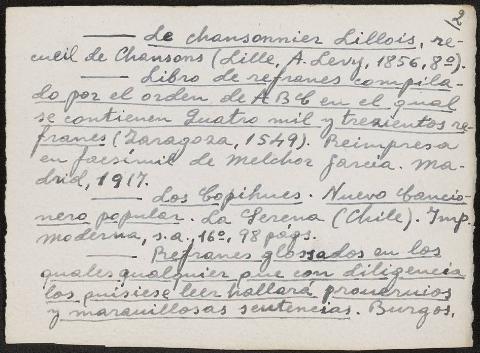 12
—— Le chansonnier Lillois, re-
cueil de Chansons (Lille, A. Levy, 1856, 8º).
—— Libro de refranes compila-
do por el orden de A B C en el qual
se contienen Quatro mil y trezientos re-
franes (Zaragoza, 1549). Reimpresa
en facsímil de Melchor García. Ma-
drid, 1917.
—— Los Copihues. Nuevo Cancio-
nero popular. La Serena (Chile). Imp.
Moderna, s.a., 16º, 98 págs.
—— Refranes glossados en los
quales qualquier que con diligencia
los quisiese leer hallará prouervios
y marauillosas sentencias. Burgos,